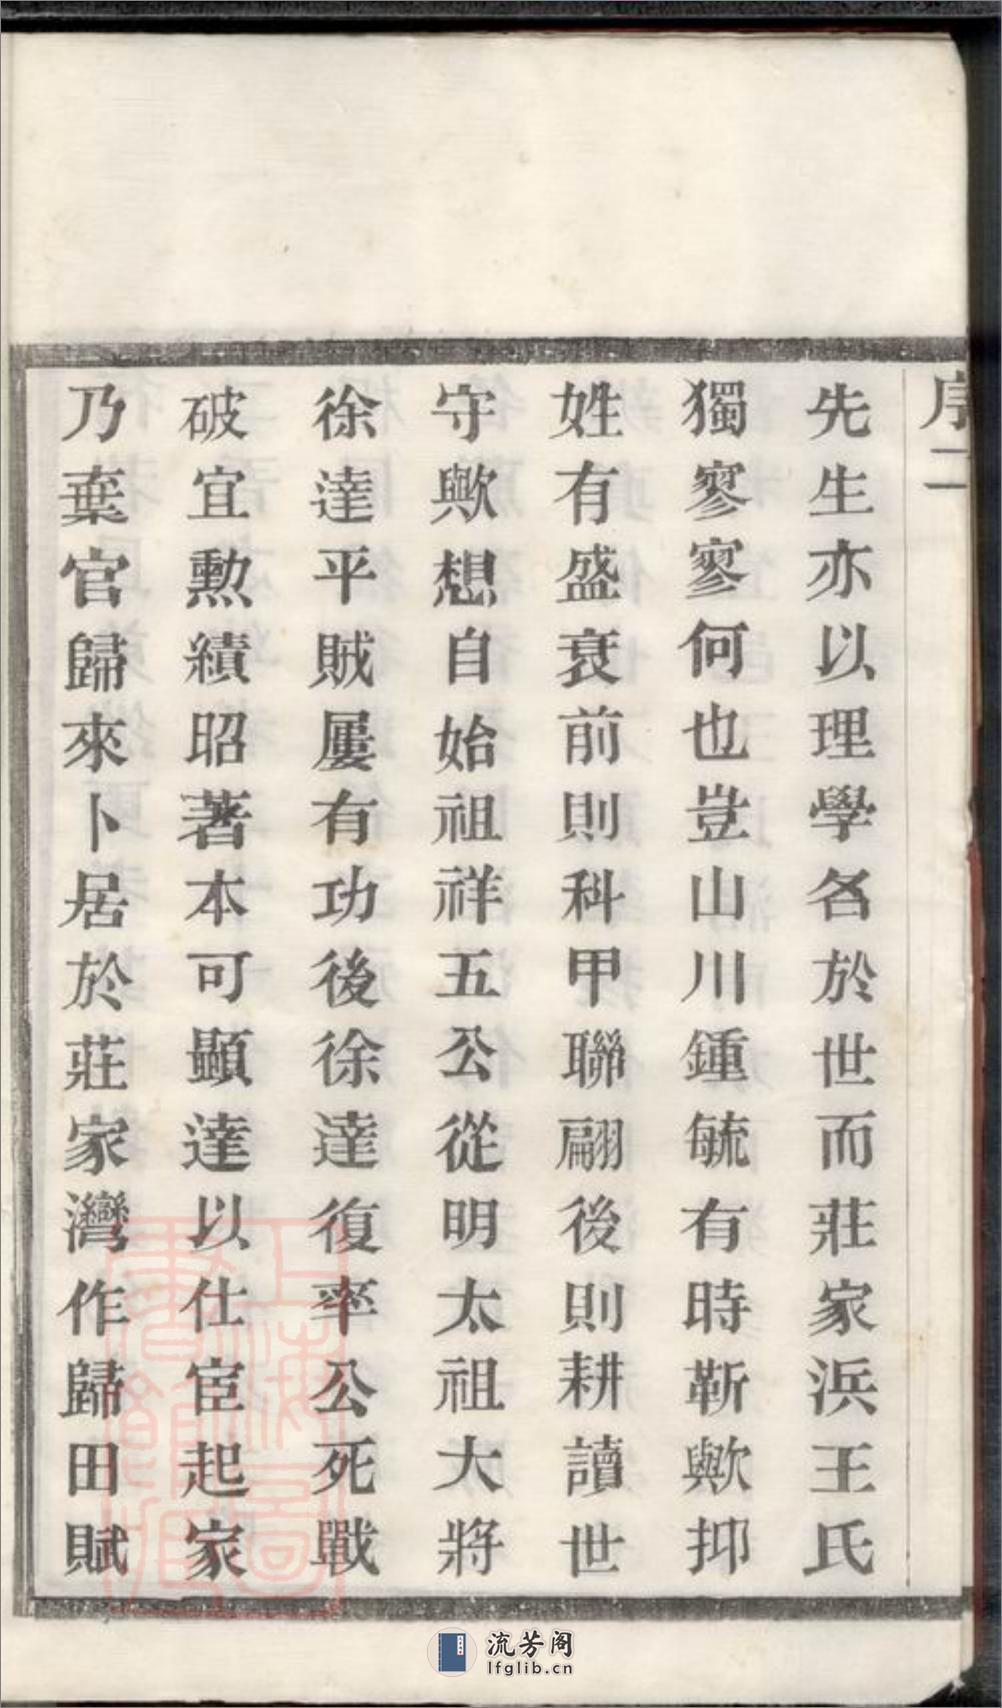 序二
先生亦以理學名於世而莊家浜王氏
獨寥寥何也豈山川鍾毓有時靳歟抑
姓有盛衰前則科甲聯翩後則耕讀世
守歟想自始祖祥五公從明太祖大將
徐達平賊屢有功後徐達復率公死戰
破宜勲績昭著本可顯達以仕宦起家
乃棄官歸來卜居於莊家灣作歸田賦
上海圖書館藏
流芳阁
lfglib.cn